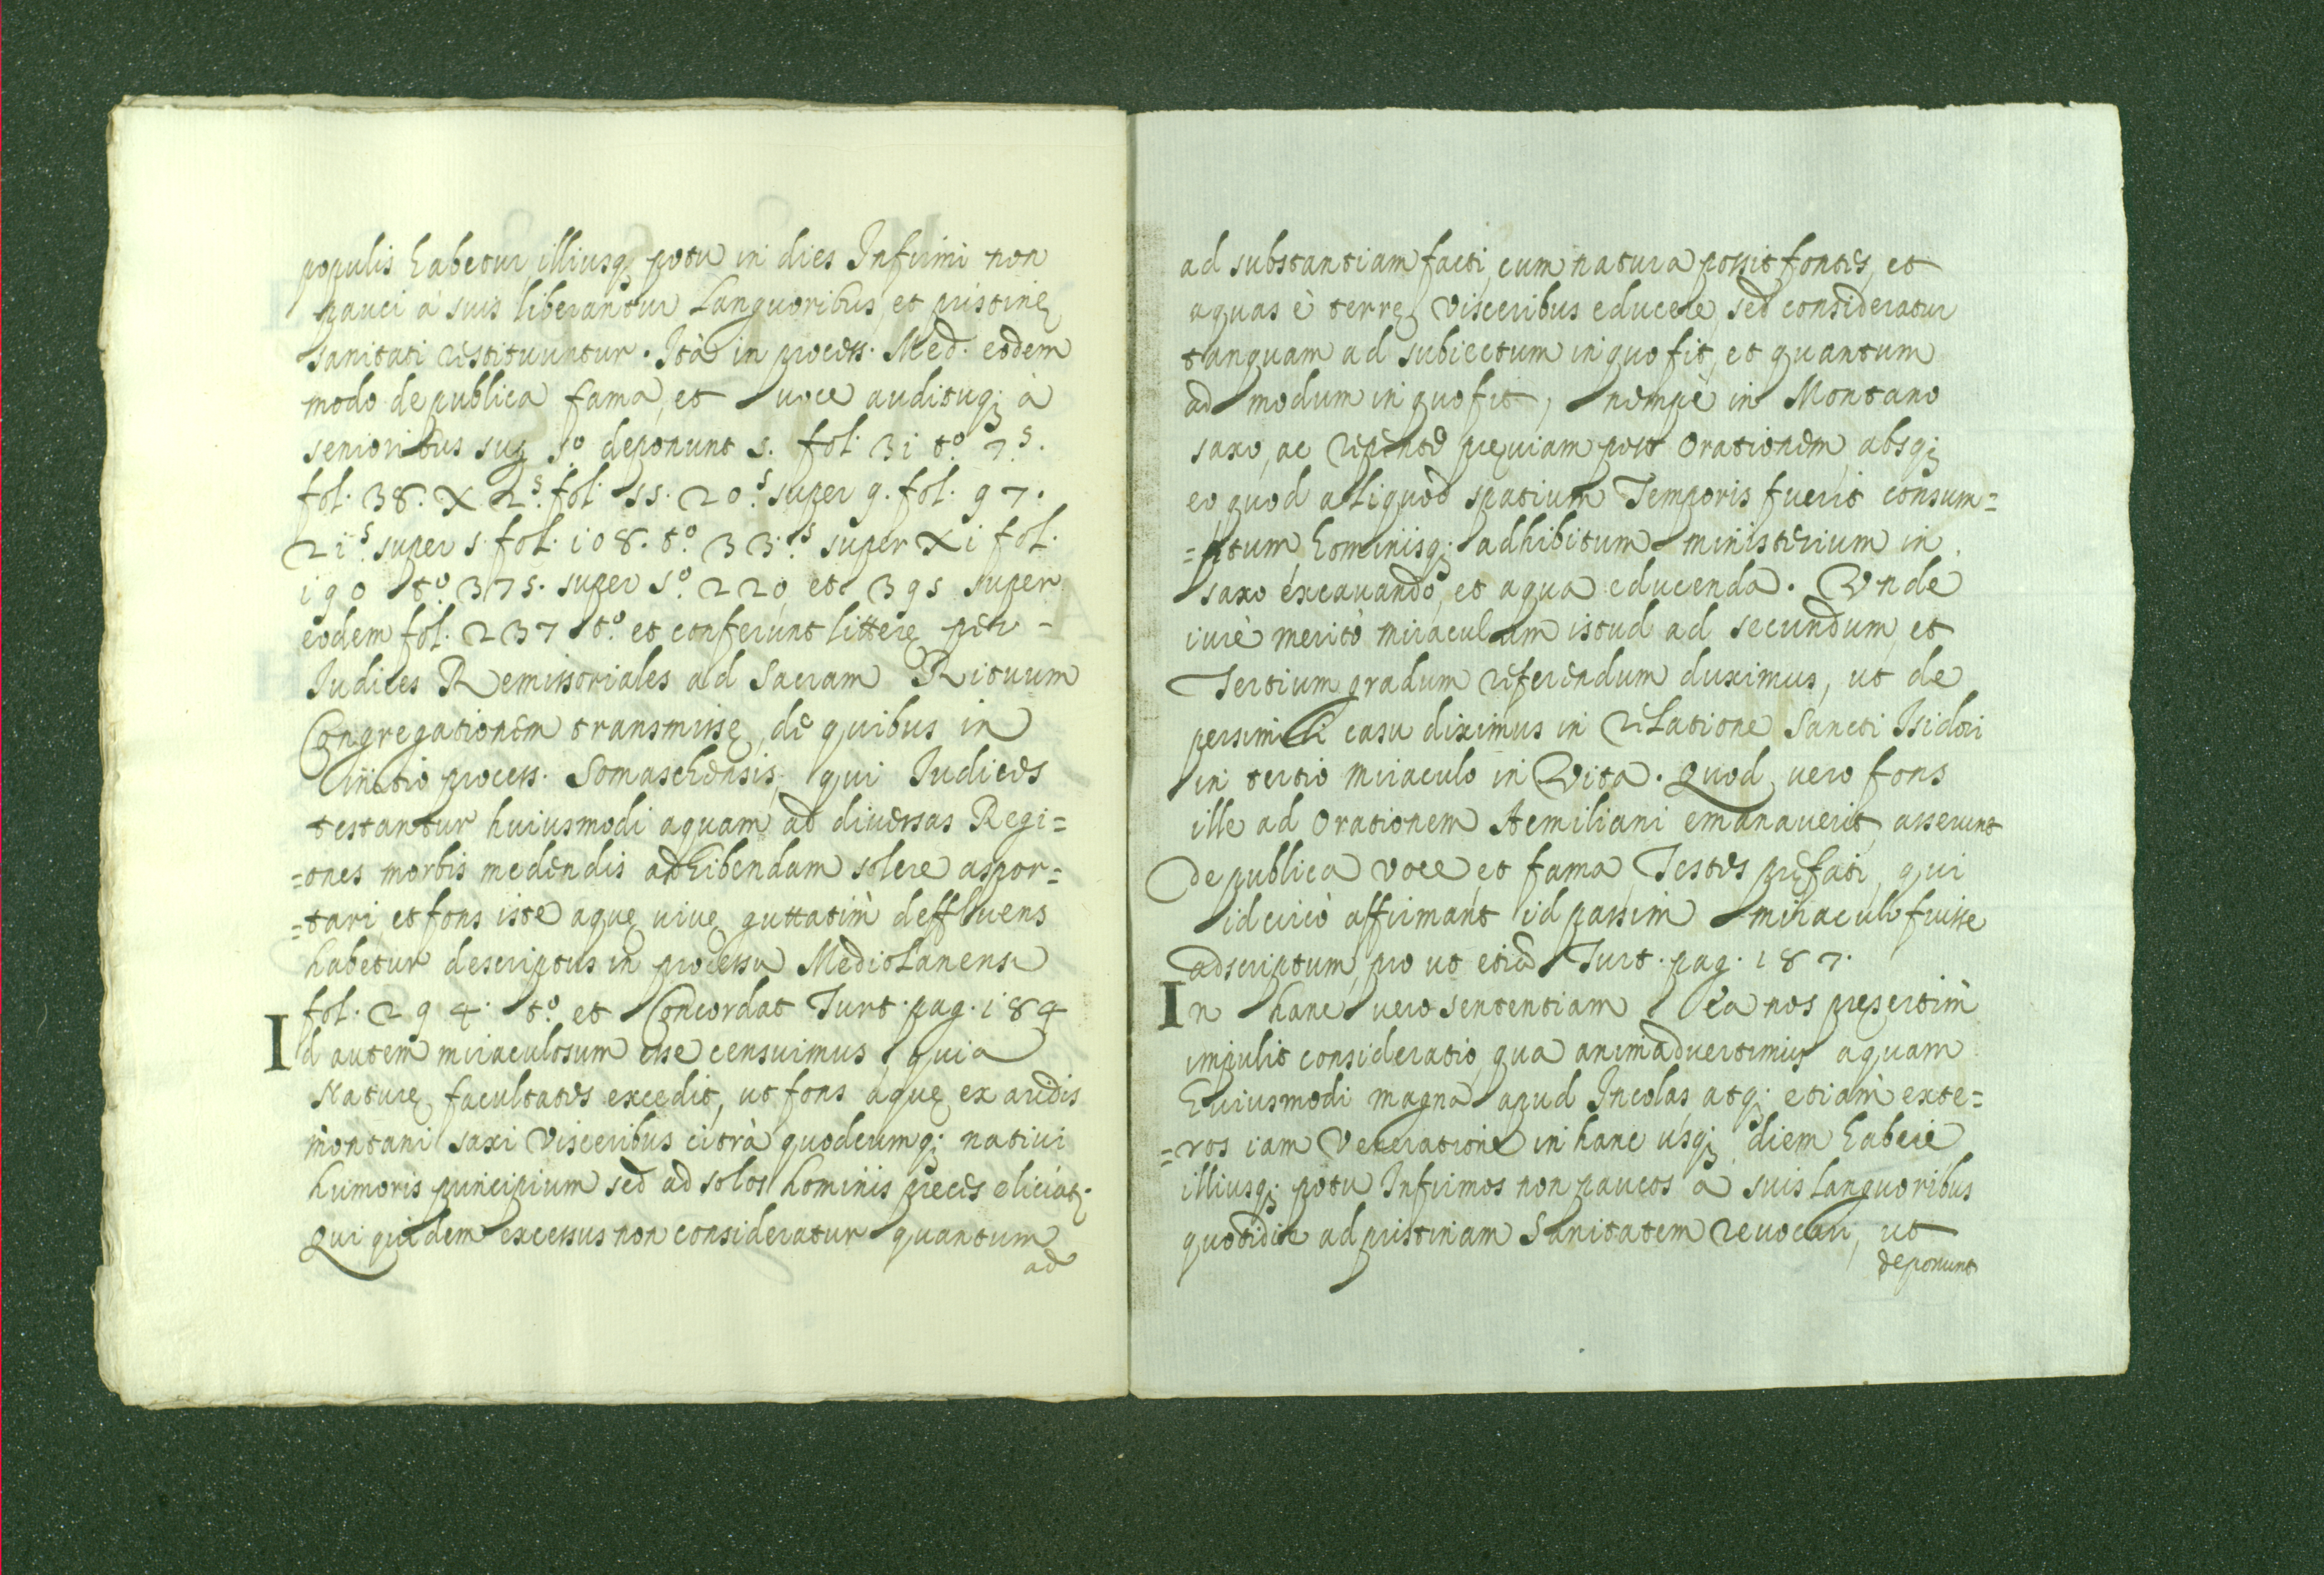 populis habetur, illiusq; potu in dies Infirmi non
pauci à suis liberantur Languoribus, et pristinę
sanitati restituuntur. Ità in process. Med. eodem
modo de publica fama, et voce audituq; à
senioribus sup. s.º deponunt s. fol. 31 t.º 7.s.
fol. 38. X 2.s fol. 55. 20.s super 9. fol. 97.
21.s super s. fol. 108. t.º 33.s super XI fol.
190 t.º 375. super s.º 220, et 395 super
eodem fol. 237 t.º et conferunt litterę per
Iudices Remissoriales ad Sacram Rituum
Congregationem transmissę, de quibus in
initio process. Somaschensis, qui Iudices
testantur huiusmodi aquam ad diuersas Regi=
=ones morbis medendis adhibendam solere aspor=
=tari, et fons iste aquę viuę guttatim deffluens
habetur descriptus in processu Mediolanensi
fol. 294. t.º et Concordat Turt. pag. 184
Id autem miraculosum esse censuimus, quia
Naturę facultates excedit, ut fons aquę ex aridis
montani saxi visceribus citrà quodcumq; natiui
humoris principium sed ad solos hominis preces eliciat;
Qui quidem excessus non consideratur quantum
ad
ad substantiam facti, cum natura possit fontes, et
aquas è terrę visceribus educere, sed consideratur
tanquam ad subiectum in quo fit, et quantum
ad modum in quo fit, nempè in Montano
saxo, ac repente pręuiam post Orationem, absq;
eo quod aliquod spatium Temporis fuerit consum=
=ptum, hominisq; adhibitum ministerium in
saxo excauando, et aqua educenda. Vnde
iurè meritò miraculum istud ad secundum, et
Tertium gradum referendum duximus, ut de
persimili casu diximus in relatione Sancti Isidori
in tertio miraculo in Vita. Quod vero fons
ille ad Orationem Aemiliani emanauerit, asserunt
de publica voce, et fama, Testes pręfati, qui
idcircò affirmant id passim miraculo fuisse
adscriptum, pro ut etia Turt. pag. 187.
In hanc vero sententiam ea nos pręsertim
impulit consideratio, qua animaduertimus aquam
huiusmodi magna apud Incolas, atq; etiam exte=
=ros iam Veneratione in hanc usq; diem habere
illiusq; potu Infirmos non paucos à suis Languoribus
quotidie ad pristinam Sanitatem reuocari, ut
deponunt